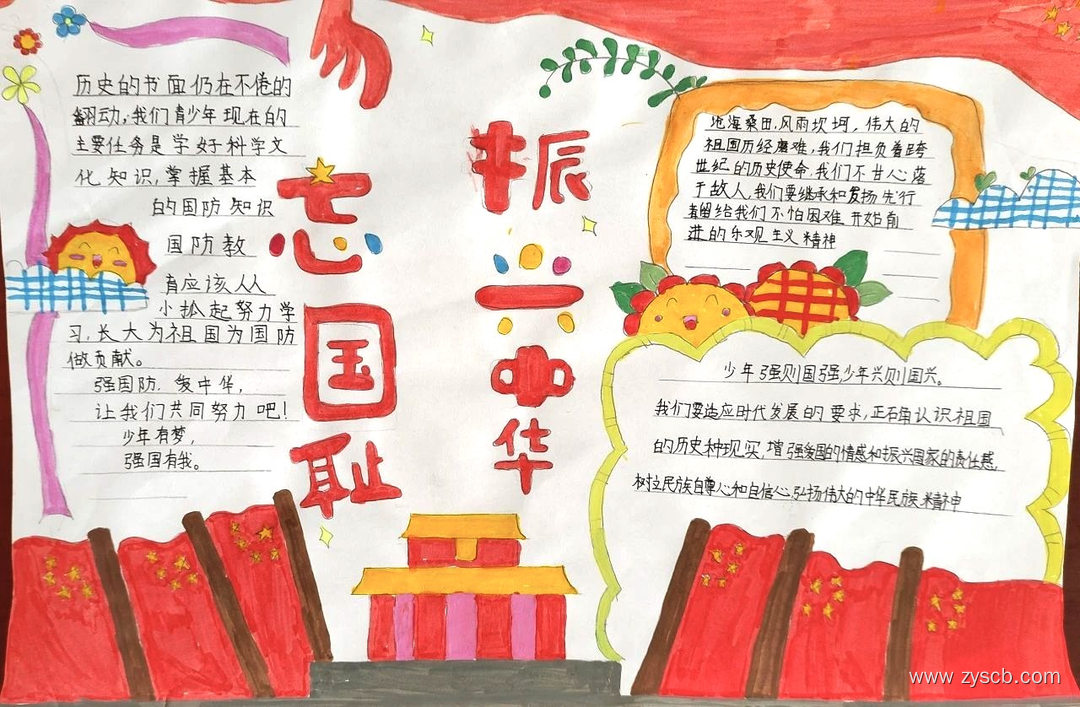 历史的书面仍在不倦的
翻动,我们青少年现在的
主要任务是学好科学文
化知识,掌握基本
的国防知识
国防教
育应该从人
小抓起努力学
习,长大为祖国为国防
做贡献。
强国防,爱中华,
让我们共同努力吧!
少年有梦,
强国有我。
忘国耻
振兴中华
沧海桑田,风雨坎坷,伟大的
祖国历经磨难,我们担负着跨
世纪的历史使命,我们不甘心落
于故人,我们要继承和发扬先行
者留给我们不怕困难,开始前
进的乐观主义精神
少年强则国强少年兴则国兴。
我们要适应时代发展的要求,正确认识祖国
的历史种现实,增强爱国的情感和振兴国家的责任感,
树立民族自尊心和自信心,弘扬伟大的中华民族精神
www.zyscb.com